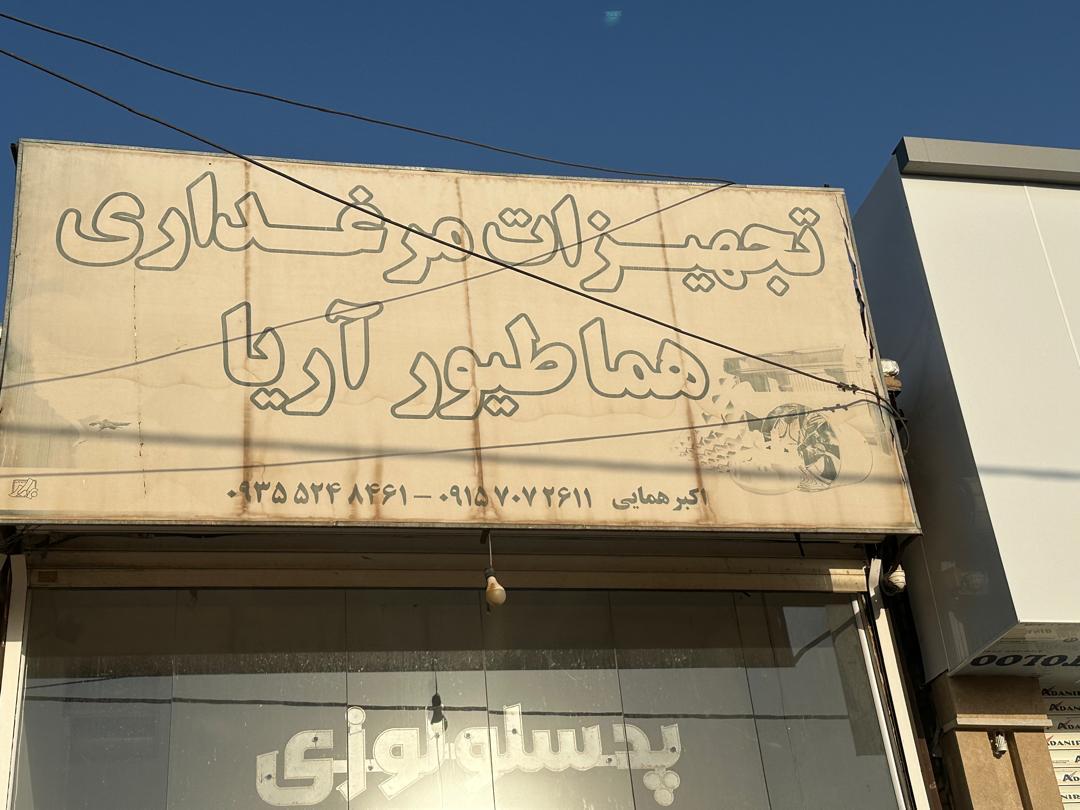 تجهیزات مرغداری
هما طیور آریا
اکبر همایی ۰۹۱۵ ۷۰۷ ۲۶۱۱ – ۰۹۳۵ ۵۲۴ ۸۴۶۱
پد سلولوزی
ADANI